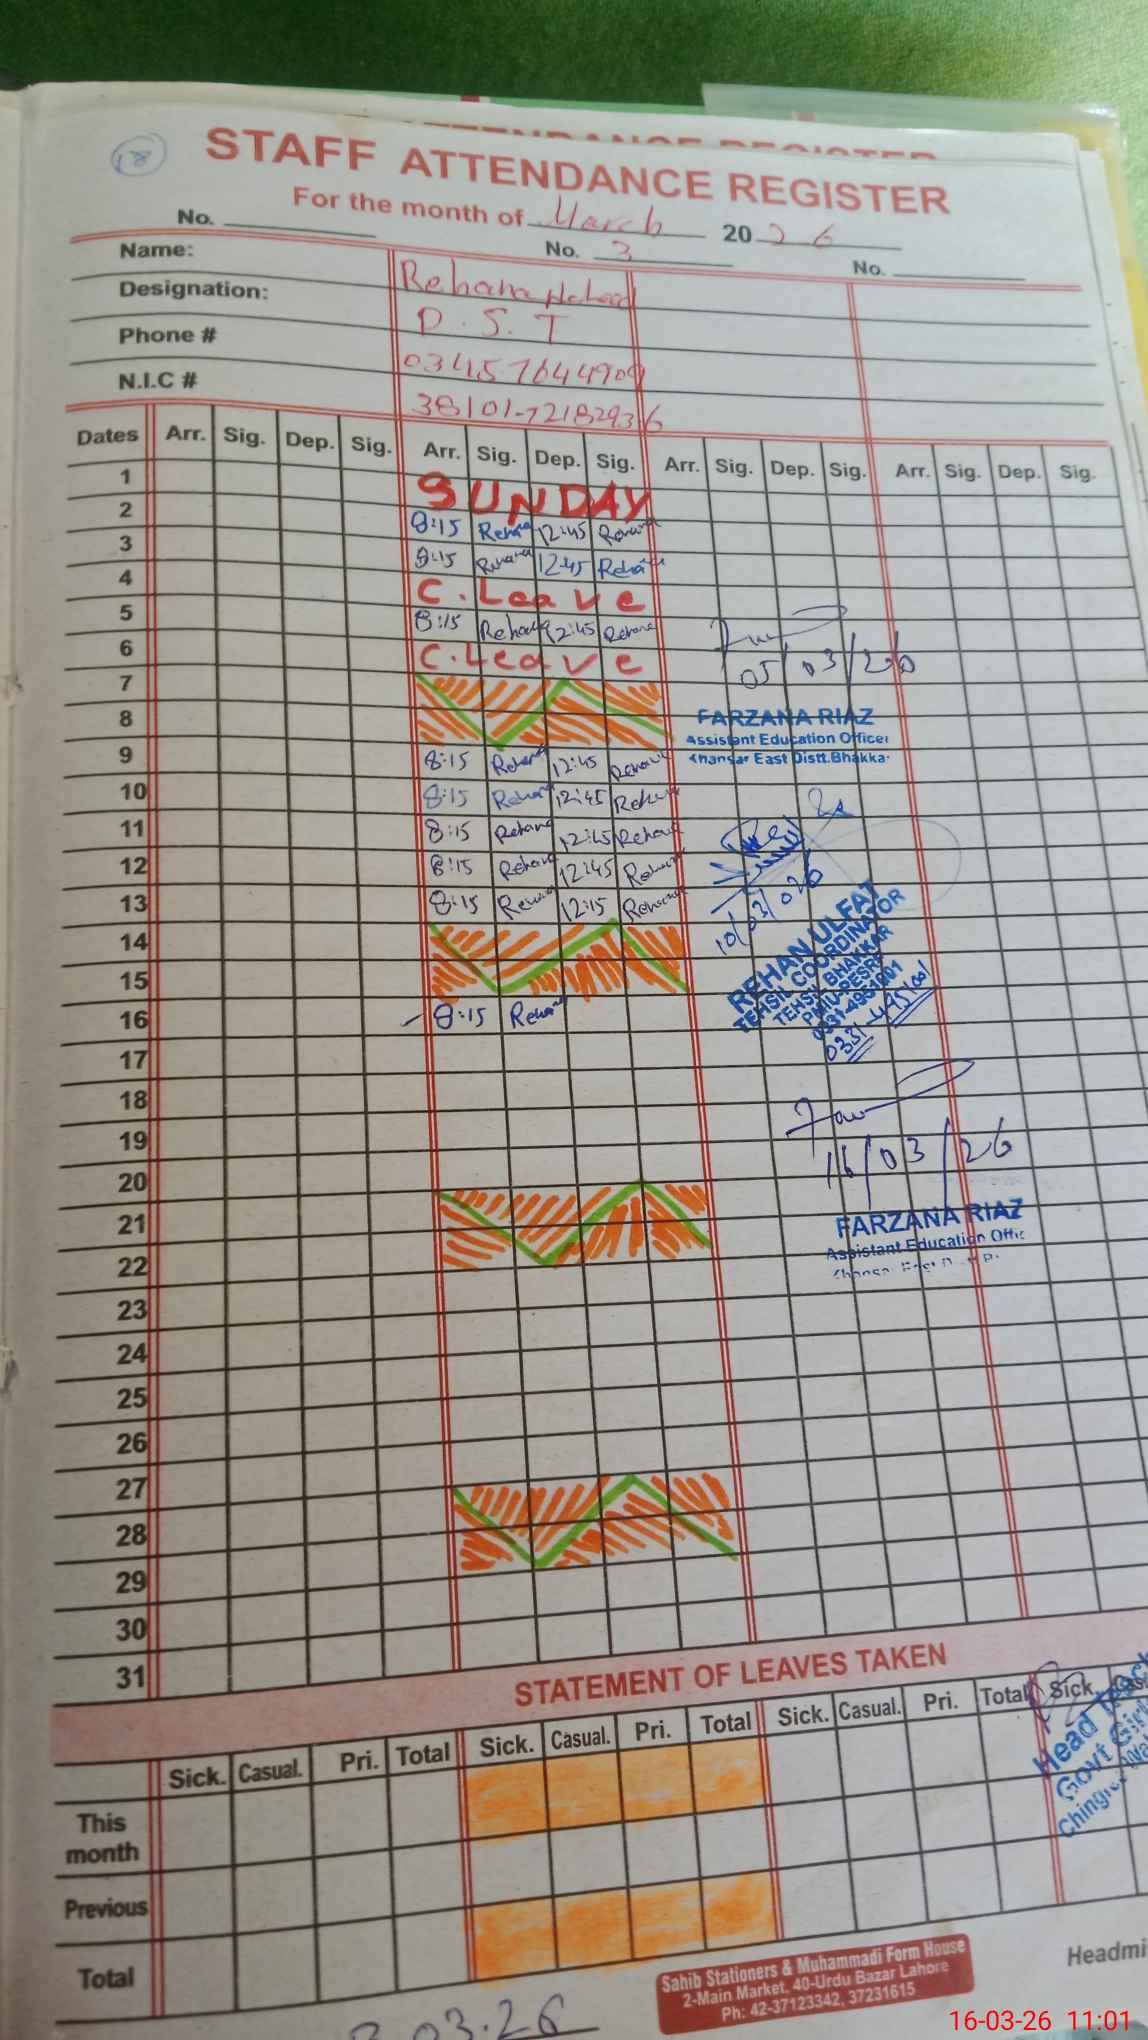 18
STAFF ATTENDANCE REGISTER
For the month of March 2026
No. No. 3 No.
Name: Rehana
Designation: P.S.T
Phone # 03457644909
N.I.C # 38101-7218293-6
Dates Arr. Sig. Dep. Sig. Arr. Sig. Dep. Sig. Arr. Sig. Dep. Sig. Arr. Sig. Dep. Sig.
1 SUNDAY
2 8:15 Rehana 12:45 Rehana
3 8:15 Rehana 12:45 Rehana
4 C.Leave
5 8:15 Rehana 12:45 Rehana
6 C.Leave
05/03/26
7
8
FARZANA RIAZ
Assistant Education Officer
Khansar East Distt.Bhakkar
9 8:15 Rehana 12:45 Rehana
10 8:15 Rehana 12:45 Rehana
11 8:15 Rehana 12:45 Rehana
12 8:15 Rehana 12:45 Rehana
13 8:15 Rehana 12:15 Rehana
10/03/026
14
15
REHAN ULFAT
TEHSIL COORDINATOR
TEHSIL BHAKKAR
PMIU-PESRP
0331-4951001
0331-4951001
16 8:15 Rehana
17
18
19
16/03/26
20
21
FARZANA RIAZ
Assistant Education Offic
22
23
24
25
26
27
28
29
30
31
STATEMENT OF LEAVES TAKEN
Sick. Casual. Pri. Total Sick. Casual. Pri. Total Sick. Casual. Pri. Total Sick.
This month
Previous
Total
Head
Govt Girl
Sahib Stationers & Muhammadi Form House
2-Main Market, 40-Urdu Bazar Lahore
Ph: 42-37123342, 37231615
Headmi
03.26
16-03-26 11:01